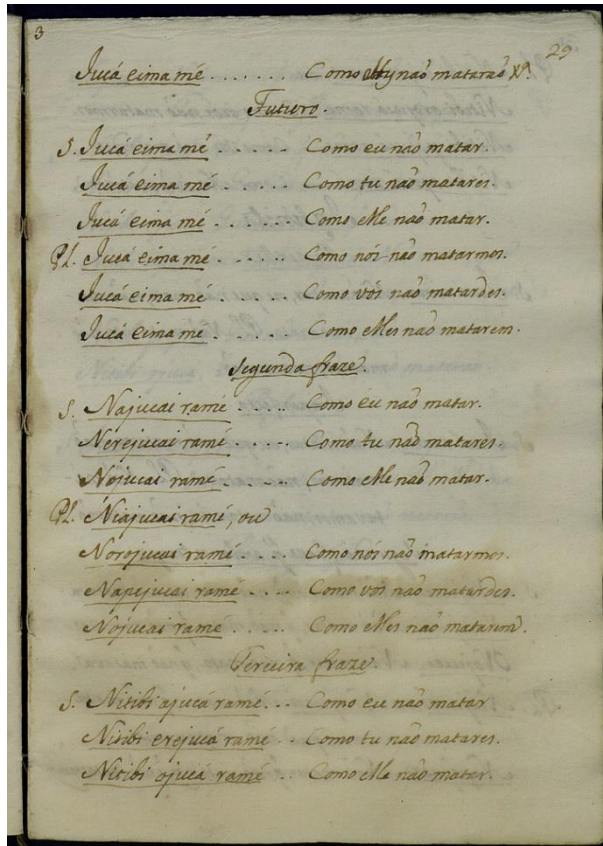 3
29
Jucá eima mé ....... Como não matarão
Futuro.
S. Jucá eima mé ..... Como eu não matar.
Jucá eima mé ..... Como tu não matares.
Jucá eima mé ..... Como elle não matar.
Pl. Jucá eima mé ..... Como nós não matarmos.
Jucá eima mé ..... Como vós não matardes.
Jucá eima mé ..... Como elles não matarem.
Segunda fraze.
S. Najucai ramé .... Como eu não matar.
Nerejucai ramé .... Como tu não matares.
Nojucai ramé .... Como elle não matar.
Pl. Niajucai ramé, ou
Norojucai ramé .... Como nós não matarmos.
Napejucai ramé .... Como vós não matardes.
Nojucai ramé ..... Como elles não matarem.
Terceira fraze.
S. Nitibi ajucá ramé... Como eu não matar
Nitibi erejucá ramé .. Como tu não matares.
Nitibi ojucá ramé .. Como elle não matar.